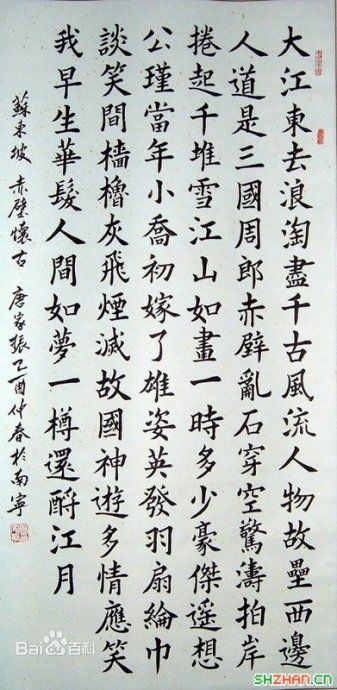 大江東去浪淘盡千古風流人物故壘西邊
人道是三國周郎赤壁亂石穿空驚濤拍岸
捲起千堆雪江山如畫一時多少豪傑遙想
公瑾當年小喬初嫁了雄姿英發羽扇綸巾
談笑間檣櫓灰飛煙滅故國神遊多情應笑
我早生華髮人間如夢一樽還酹江月
蘇東坡 赤壁懷古 唐家振乙酉仲春於南寧
Bai百科
SHZHAN.CN